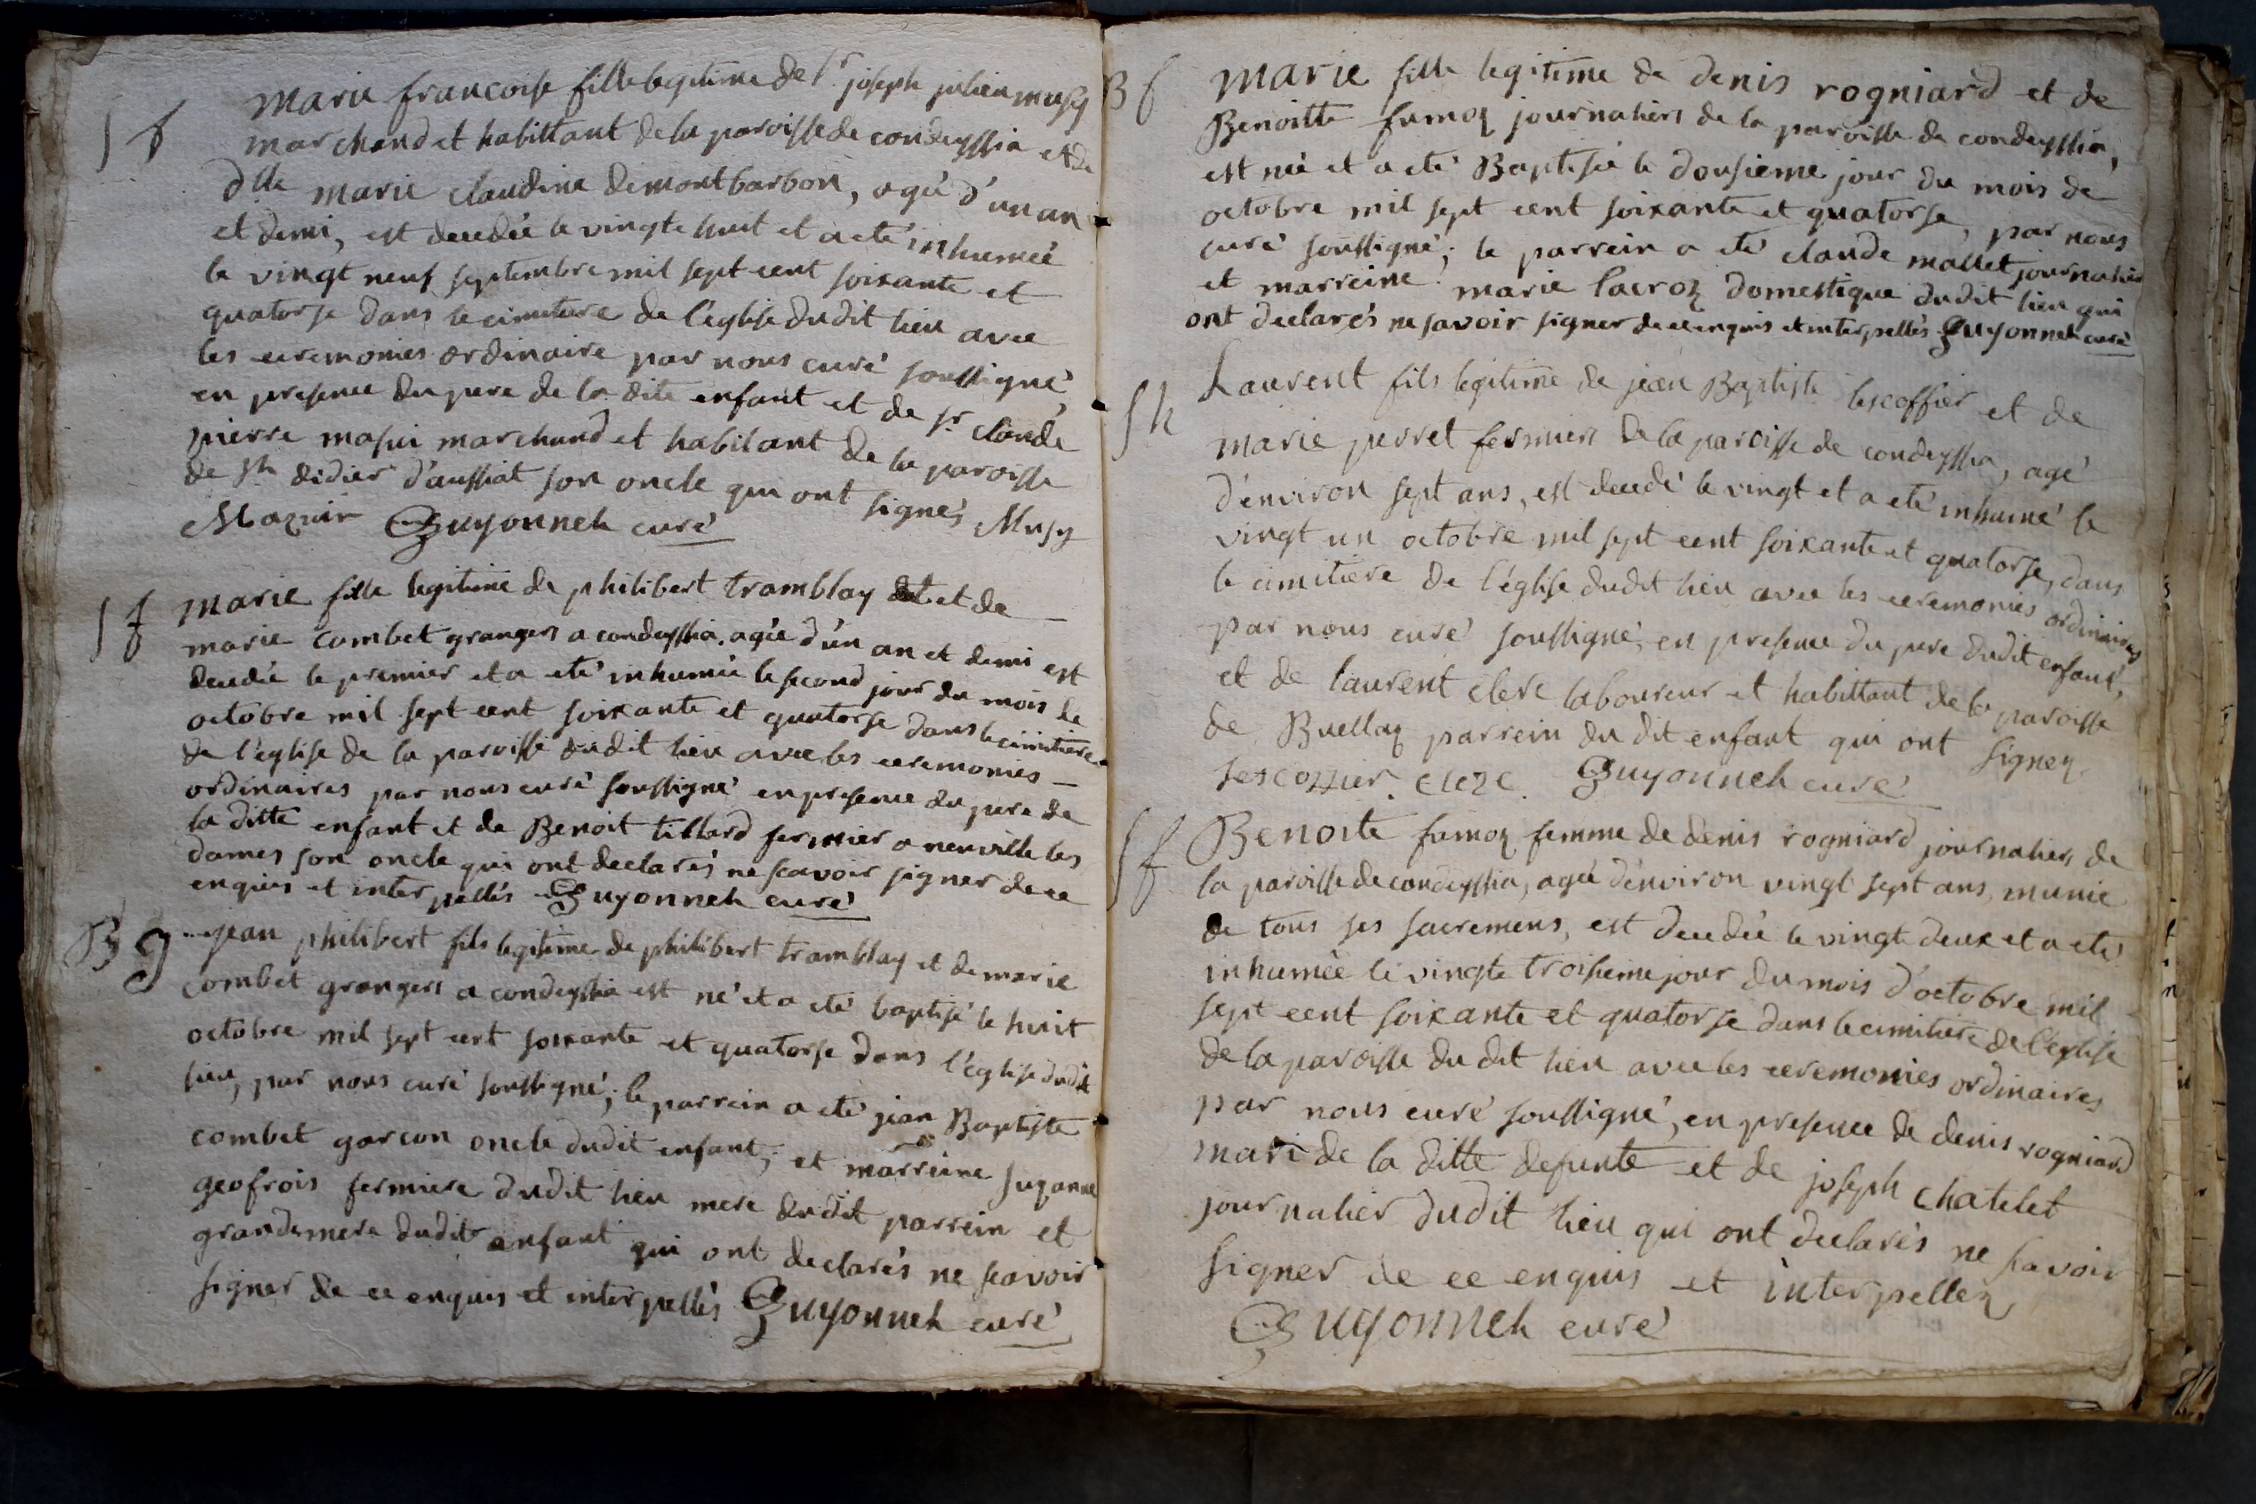 S f
Marie francoise fille legitime de Sr. joseph julien musy
marchand et habittant de la paroisse de condeyssia et de
dlle marie claudine demontbarbon, agée d'un an
et demi, est decedée le vingte huit et a eté inhumeé
le vingt neuf septembre mil sept cent soixante et
quatorse dans le cimitiere de l'église dudit lieu avec
les ceremonies ordinaire par nous curé soussigné
en presence du pere de la dite enfant et de sr. claude
pierre masui marchand et habitant de la paroisse
de st didier d'aussiat son oncle qui ont signés Musy
Mazuir Guyonneh curé
S f
marie fille legitime de philibert tramblay et de
marie combet grangers a condeyssia, agée d'un an et demi est
decedée le premier et a eté inhumée le second jour du mois de
octobre mil sept cent soixante et quatorse dans le cimitiere
de l'église de la paroisse dudit lieu avec les ceremonies
ordinaires par nous curé soussigné en presence du pere de
la ditte enfant et de Benoit tillard fermier a neuville les
dames son oncle qui ont declarés ne scavoir signer de ce
enquis et interpellés Guyonneh curé
B g
jean philibert fils legitime de philibert tramblay et de marie
combet grangers a condeyssia est né et a eté baptisé le huit
octobre mil sept cent soixante et quatorse dans l'église dudit
lieu, par nous curé soussigné; le parrein a eté jean Baptiste
combet garcon oncle dudit enfant, et marreine suzanne
geofrois fermiere dudit lieu mere dudit parrein et
grandemere dudit enfant qui ont declarés ne scavoir
signer de ce enquis et interpellés Guyonneh curé
B f
Marie fille legitime de denis rogniard et de
Benoitte famoz journaliers de la paroisse de condeyssia,
est née et a eté Baptisée le dousieme jour du mois de
octobre mil sept cent soixante et quatorse, par nous
curé soussigné; le parrein a eté claude mallet journalier
et marreine marie lacroz domestique dudit lieu qui
ont declarés ne savoir signer de ce enquis et interpellés Guyonneh curé
S h
Laurent fils légitime de jean Baptiste lescoffier et de
marie perret fermiers de la paroisse de condeyssia, agé
d'environ sept ans, est decedé le vingt et a eté inhumé le
vingt un octobre mil sept cent soixante et quatorse, dans
le cimitiere de l'église dudit lieu avec les ceremonies ordinaires
par nous curé soussigné, en presence du pere dudit enfant,
et de laurent clerc laboureur et habittant de la paroisse
de Buellaz parrein du dit enfant qui ont signez
Lescoffier. Clerc. Guyonneh curé
S f
Benoite famoz femme de denis rogniard journaliers de
la paroisse de condeyssia, agée d'environ vingt sept ans, munie
de tous ses sacremens, est decedée le vingt deux et a eté
inhumée le vingte troisieme jour du mois d'octobre mil
sept cent soixante et quatorse dans le cimitiere de l'église
de la paroisse du dit lieu avec les ceremonies ordinaires
par nous curé soussigné, en presence de denis rogniard
mari de la ditte defunte et de joseph chatelet
journalier dudit lieu qui ont declarés ne scavoir
signer de ce enquis et interpellez
Guyonneh curé